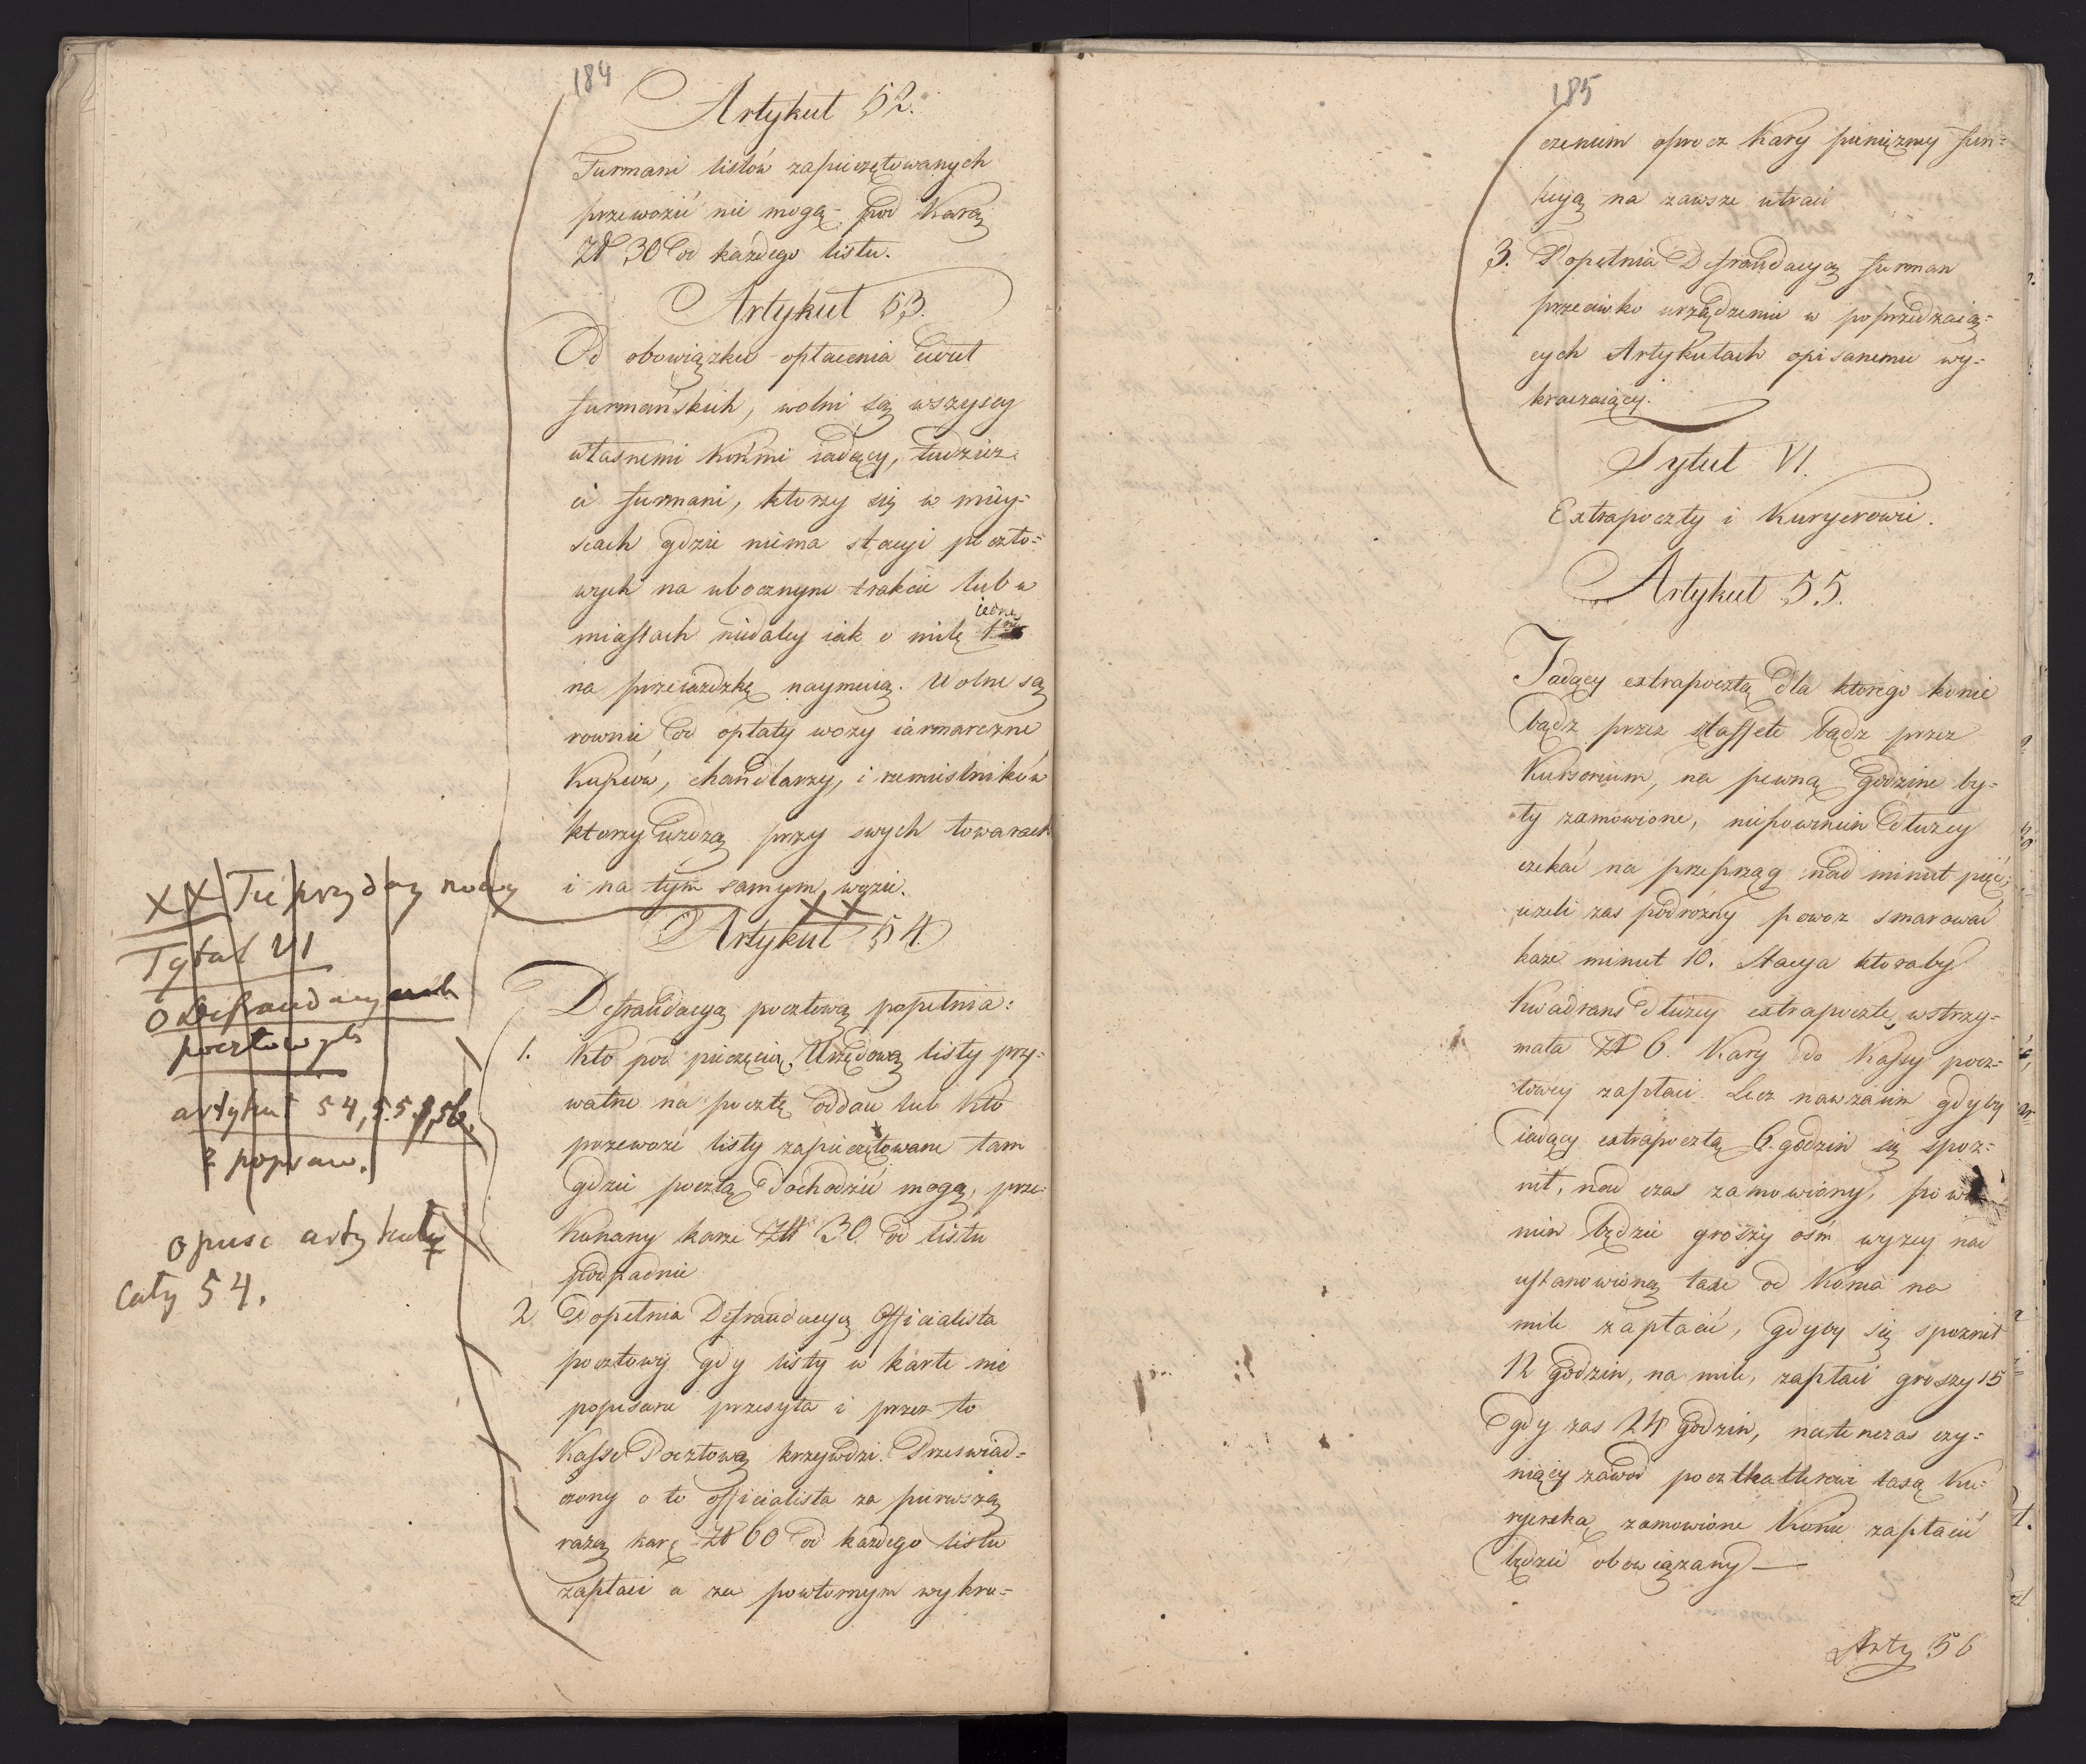 184
Artykuł 52.
Furmani listów zapieczętowanych
przewozić nie mogą pod Karą
Zł 30 od każdego listu.
Artykuł 53.
Od obowiązku opłacenia
furmańskich, wolni są wszyscy
własnemi Końmi iadący, tudzież
ci furmani, ktorzy się w miey=
scach gdzie niema stacyi poczto=
wych na ubocznym trakcie lub w
miastach niedaley iak o milę iedne
na przeiażdżkę naymuią. Wolne są
rownie od opłaty wozy iarmarczne
Kupców, chandlarzy, i rzemieslników
ktorzy iezdzą przy swych towarach
i na tym samym wozie.
XX
Artykuł 54.
Defraudacyą pocztową popełnia:
1. Kto pod pieczęcią Urzędową listy pry=
watne na pocztę oddaie lub Kto
przewozi listy zapieczętowane tam
gdzie pocztą dochodzić mogą, prze=
Konany karze Zł 30 od listu
podpadnie
2. Popełnia Defraudacyą Officialista
pocztowy gdy listy w karte nie
popisane przesyła i przez to
Kassę Pocztową krzywdzi. Przeswiad=
czony o to officialista za pierwszą
razą karę Zł 60 od każdego listu
zapłaci a za powtornym wykro=
XX Tu przydaz nowy
Tytuł VI
O Defraudacyach
pocztowych
artykuł 54, 55, 56.
z popraw.
opusc artykuły
cały 54.
185
czeniem oprocz Kary pienięzney fun=
kcyą na zawsze utraci
3. Popełnia Defraudacyą furman
przeciwko urządzeniu w poprzedzaią=
cych Artykułach opisanemu wy=
kraczaiący.
Tytuł VI.
Extrapoczty i Kuryerowie.
Artykuł 55.
Iadący extrapocztą dla ktorego konie
bądz przez sztaffete bądz przez
Kursorium, na pewną godzine by=
ły zamowione, niepowinien dłuzey
czekać na przeprząg nad minut pięć;
iezeli zas podrozny powoz smarować
kaze minut 10. Stacya ktoraby
Kwadrans dłuzey extrapocztę wstrzy=
mała Zł 6. Kary do Kassy pocz=
towey zapłaci. Lecz nawzaiem gdyby
iadący extrapocztą 6. godzin się spoz=
nił, nad czas zamowiony, powi
nien będzie groszy ośm wyzey nad
ustanowioną taxe od Konia na
mile zapłacić, gdyby się spoznił
12 godzin, na mile, zapłaci groszy 15
gdy zas 24 godzin, natenczas czy=
niący zawod poczthalterowi taxą Ku=
ryerską zamowione Konie zapłacić
będzie obowiązany —
Arty 56